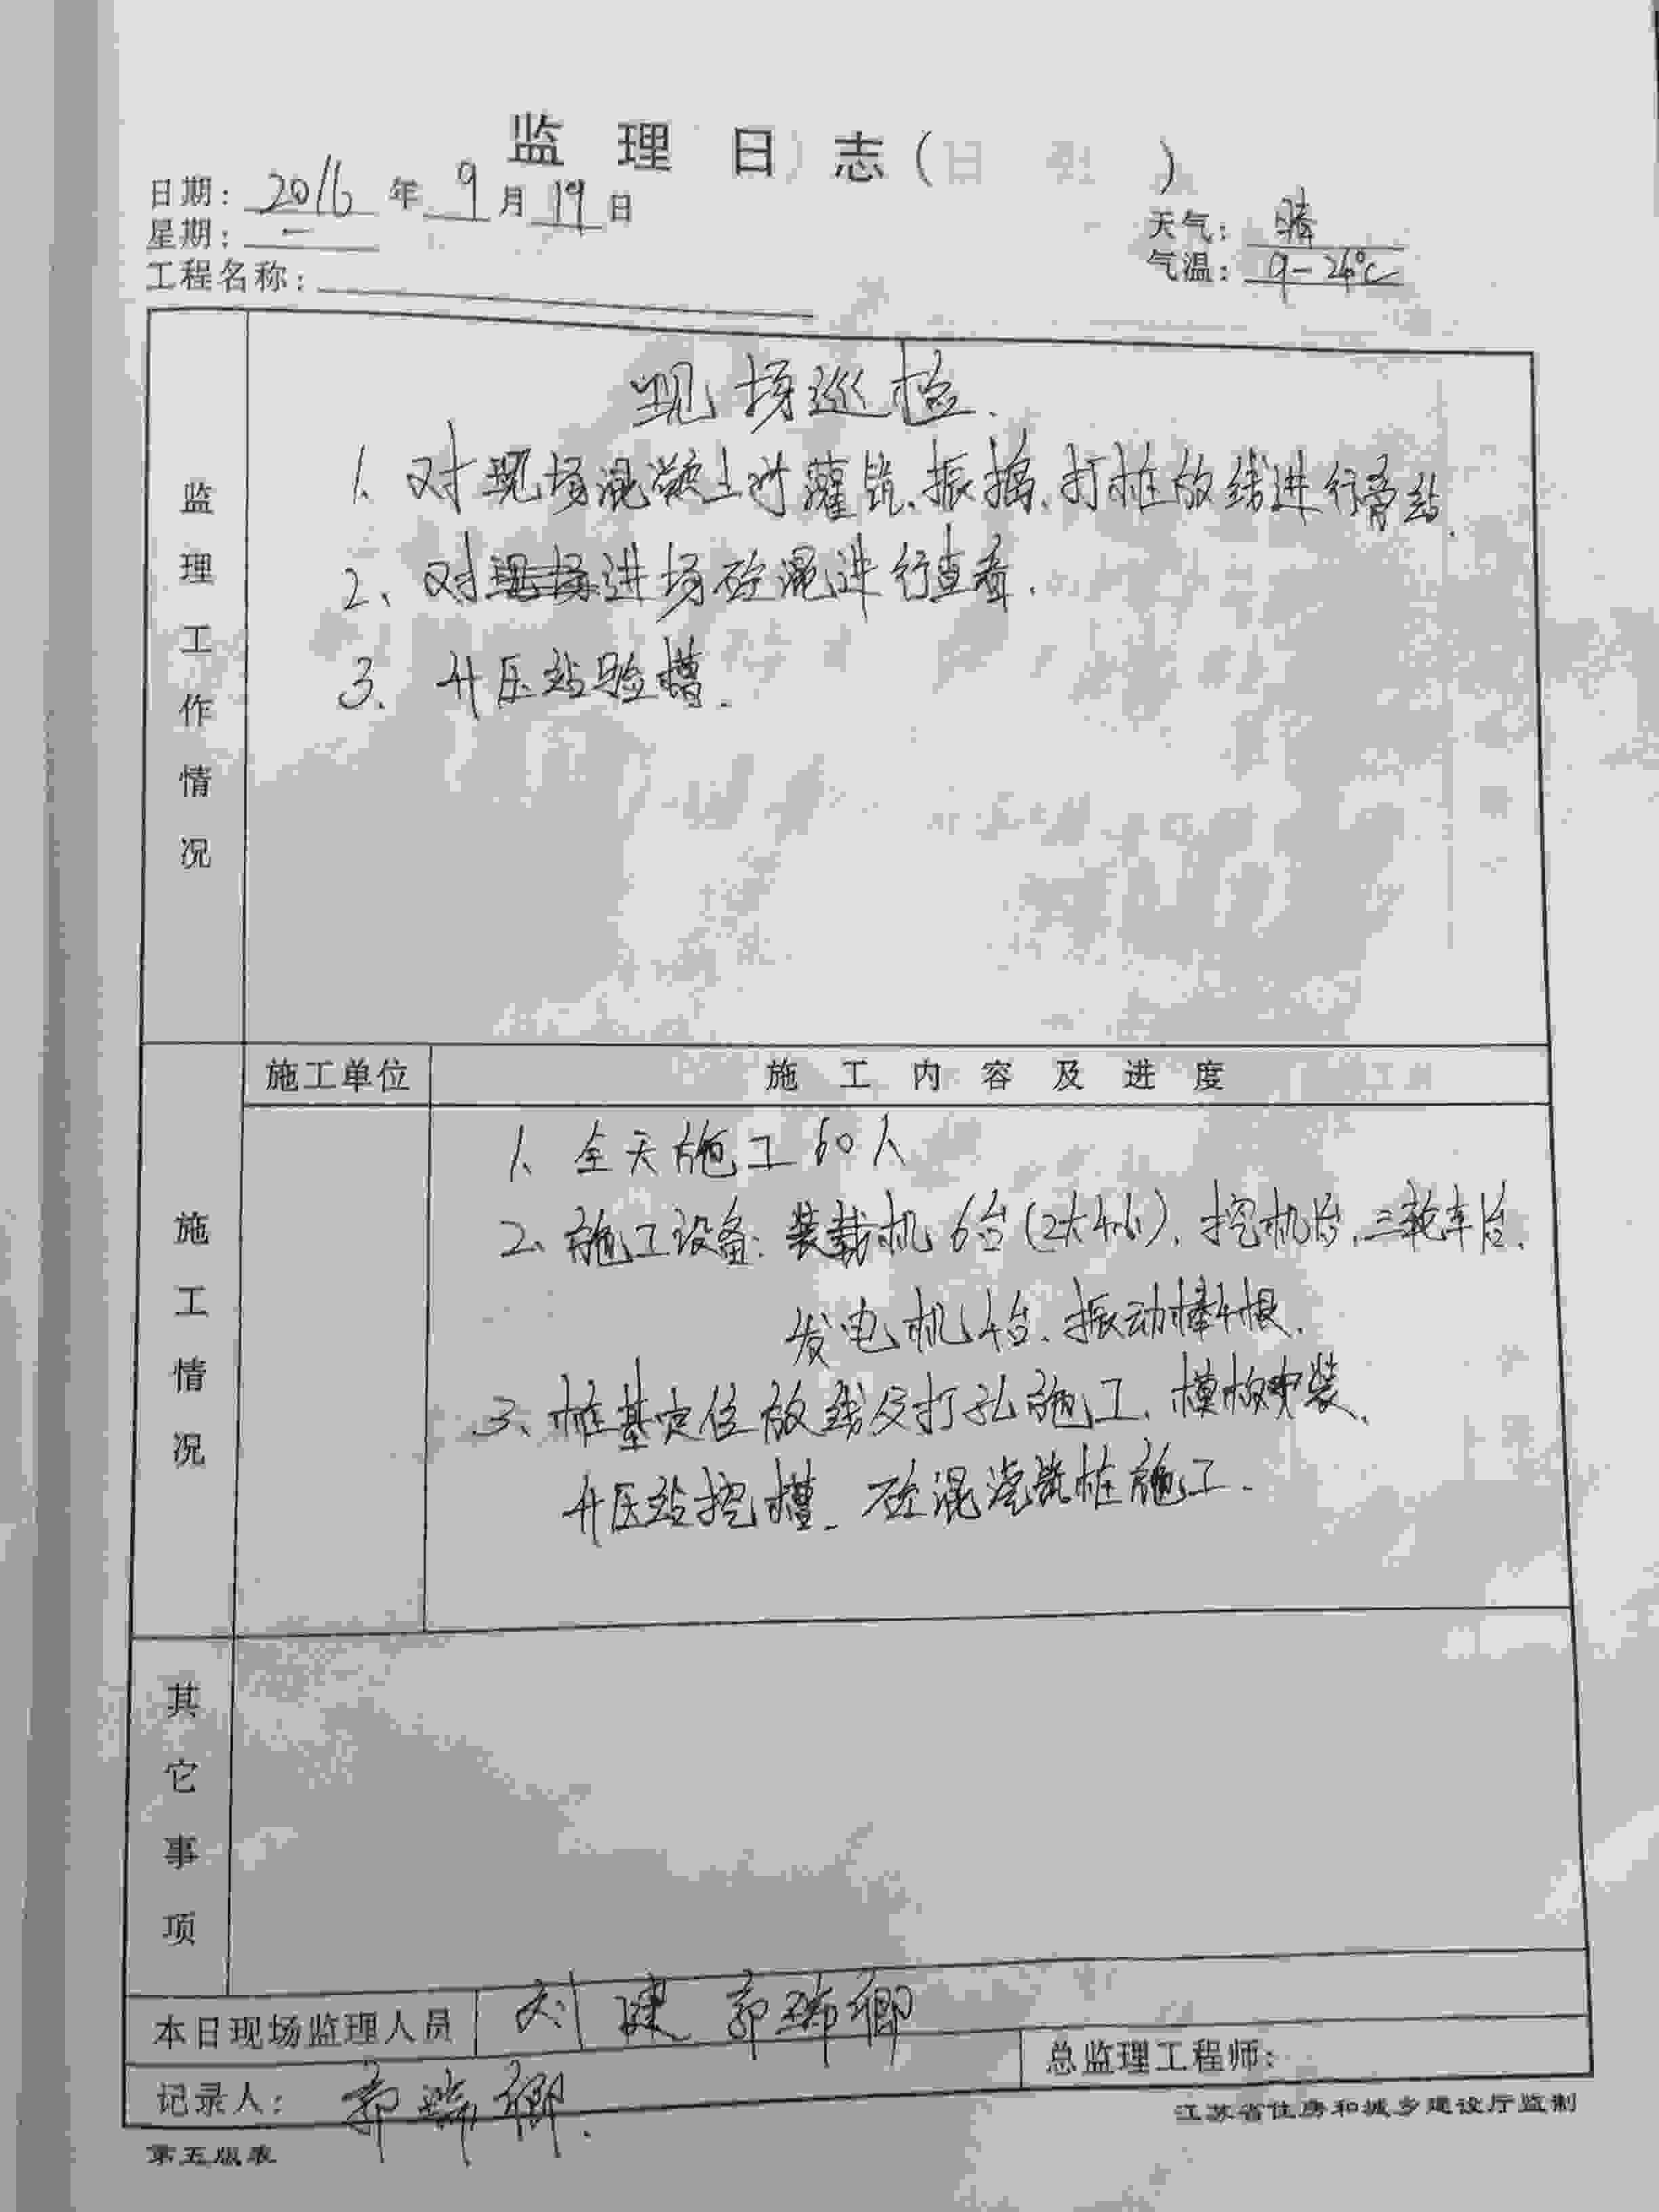 监理日志（        ）
日期：2016年9月19日
星期：一
天气：晴
气温：9-24℃
工程名称：
监理工作情况
现场巡检.
1、对现场混凝土对灌筑、振捣、打桩放线进行旁站.
2、对进场砼混进行查看.
3、升压站验槽.
施工情况
施工单位
施工内容及进度
1、全天施工60人
2、施工设备：装载机6台(2大4小)、挖机台、三轮车台、
发电机4台、振动棒4根、
3、桩基定位放线及打孔施工、模构安装、
升压站挖槽、砼混浇筑桩施工.
其它事项
本日现场监理人员 刘建 郭瑞卿
记录人：郭瑞卿.
总监理工程师：
江苏省住房和城乡建设厅监制
第五版表